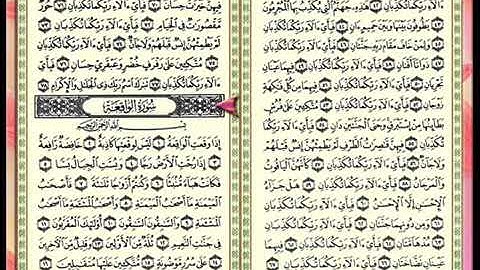 فَبِأَيِّ ءَالَآءِ رَبِّكُمَا تُكَذِّبَانِ ٤٢ هَٰذِهِۦ جَهَنَّمُ ٱلَّتِى يُكَذِّبُ بِهَا ٱلْمُجْرِمُونَ ٤٣
يَطُوفُونَ بَيْنَهَا وَبَيْنَ حَمِيمٍ ءَانٍ ٤٤ فَبِأَيِّ ءَالَآءِ رَبِّكُمَا تُكَذِّبَانِ ٤٥
وَلِمَنْ خَافَ مَقَامَ رَبِّهِۦ جَنَّتَانِ ٤٦ فَبِأَيِّ ءَالَآءِ رَبِّكُمَا تُكَذِّبَانِ ٤٧
ذَوَاتَآ أَفْنَانٍ ٤٨ فَبِأَيِّ ءَالَآءِ رَبِّكُمَا تُكَذِّبَانِ ٤٩ فِيهِمَا عَيْنَانِ
تَجْرِيَانِ ٥٠ فَبِأَيِّ ءَالَآءِ رَبِّكُمَا تُكَذِّبَانِ ٥١ فِيهِمَا مِن كُلِّ فَٰكِهَةٍ
زَوْجَانِ ٥٢ فَبِأَيِّ ءَالَآءِ رَبِّكُمَا تُكَذِّبَانِ ٥٣ مُتَّكِـِٔينَ عَلَىٰ فُرُشٍۭ
بَطَآئِنُهَا مِنْ إِسْتَبْرَقٍ وَجَنَى ٱلْجَنَّتَيْنِ دَانٍ ٥٤ فَبِأَيِّ ءَالَآءِ
رَبِّكُمَا تُكَذِّبَانِ ٥٥ فِيهِنَّ قَٰصِرَٰتُ ٱلطَّرْفِ لَمْ يَطْمِثْهُنَّ إِنسٌ قَبْلَهُمْ
وَلَا جَآنٌّ ٥٦ فَبِأَيِّ ءَالَآءِ رَبِّكُمَا تُكَذِّبَانِ ٥٧ كَأَنَّهُنَّ ٱلْيَاقُوتُ
وَٱلْمَرْجَانُ ٥٨ فَبِأَيِّ ءَالَآءِ رَبِّكُمَا تُكَذِّبَانِ ٥٩ هَلْ جَزَآءُ
ٱلْإِحْسَٰنِ إِلَّا ٱلْإِحْسَٰنُ ٦٠ فَبِأَيِّ ءَالَآءِ رَبِّكُمَا تُكَذِّبَانِ ٦١
وَمِن دُونِهِمَا جَنَّتَانِ ٦٢ فَبِأَيِّ ءَالَآءِ رَبِّكُمَا تُكَذِّبَانِ ٦٣
مُدْهَآمَّتَانِ ٦٤ فَبِأَيِّ ءَالَآءِ رَبِّكُمَا تُكَذِّبَانِ ٦٥ فِيهِمَا
عَيْنَانِ نَضَّاخَتَانِ ٦٦ فَبِأَيِّ ءَالَآءِ رَبِّكُمَا تُكَذِّبَانِ ٦٧
فِيهِنَّ خَيْرَٰتٌ حِسَانٌ ٧٠ فَبِأَيِّ ءَالَآءِ رَبِّكُمَا تُكَذِّبَانِ ٧١ حُورٌ
مَّقْصُورَٰتٌ فِى ٱلْخِيَامِ ٧٢ فَبِأَيِّ ءَالَآءِ رَبِّكُمَا تُكَذِّبَانِ ٧٣
لَمْ يَطْمِثْهُنَّ إِنسٌ قَبْلَهُمْ وَلَا جَآنٌّ ٧٤ فَبِأَيِّ ءَالَآءِ
رَبِّكُمَا تُكَذِّبَانِ ٧٥ مُتَّكِـِٔينَ عَلَىٰ رَفْرَفٍ خُضْرٍ وَعَبْقَرِىٍّ حِسَانٍ ٧٦ فَبِأَيِّ
ءَالَآءِ رَبِّكُمَا تُكَذِّبَانِ ٧٧ تَبَٰرَكَ ٱسْمُ رَبِّكَ ذِى ٱلْجَلَٰلِ وَٱلْإِكْرَامِ ٧٨
سُورَةُ الوَاقِعَةِ
بِسْمِ ٱللَّهِ ٱلرَّحْمَٰنِ ٱلرَّحِيمِ
إِذَا وَقَعَتِ ٱلْوَاقِعَةُ ١ لَيْسَ لِوَقْعَتِهَا كَاذِبَةٌ ٢ خَافِضَةٌ رَّافِعَةٌ
٣ إِذَا رُجَّتِ ٱلْأَرْضُ رَجًّا ٤ وَبُسَّتِ ٱلْجِبَالُ بَسًّا ٥
فَكَانَتْ هَبَآءً مُّنۢبَثًّا ٦ وَكُنتُمْ أَزْوَٰجًا ثَلَٰثَةً ٧ فَأَصْحَٰبُ
ٱلْمَيْمَنَةِ مَآ أَصْحَٰبُ ٱلْمَيْمَنَةِ ٨ وَأَصْحَٰبُ ٱلْمَشْـَٔمَةِ مَآ أَصْحَٰبُ
ٱلْمَشْـَٔمَةِ ٩ وَٱلسَّٰبِقُونَ ٱلسَّٰبِقُونَ ١٠ أُو۟لَٰٓئِكَ ٱلْمُقَرَّبُونَ ١١
فِى جَنَّٰتِ ٱلنَّعِيمِ ١٢ ثُلَّةٌ مِّنَ ٱلْأَوَّلِينَ ١٣ وَقَلِيلٌ مِّنَ ٱلْـَٔاخِرِينَ
١٤ عَلَىٰ سُرُرٍ مَّوْضُونَةٍ ١٥ مُّتَّكِـِٔينَ عَلَيْهَا مُتَقَٰبِلِينَ ١٦